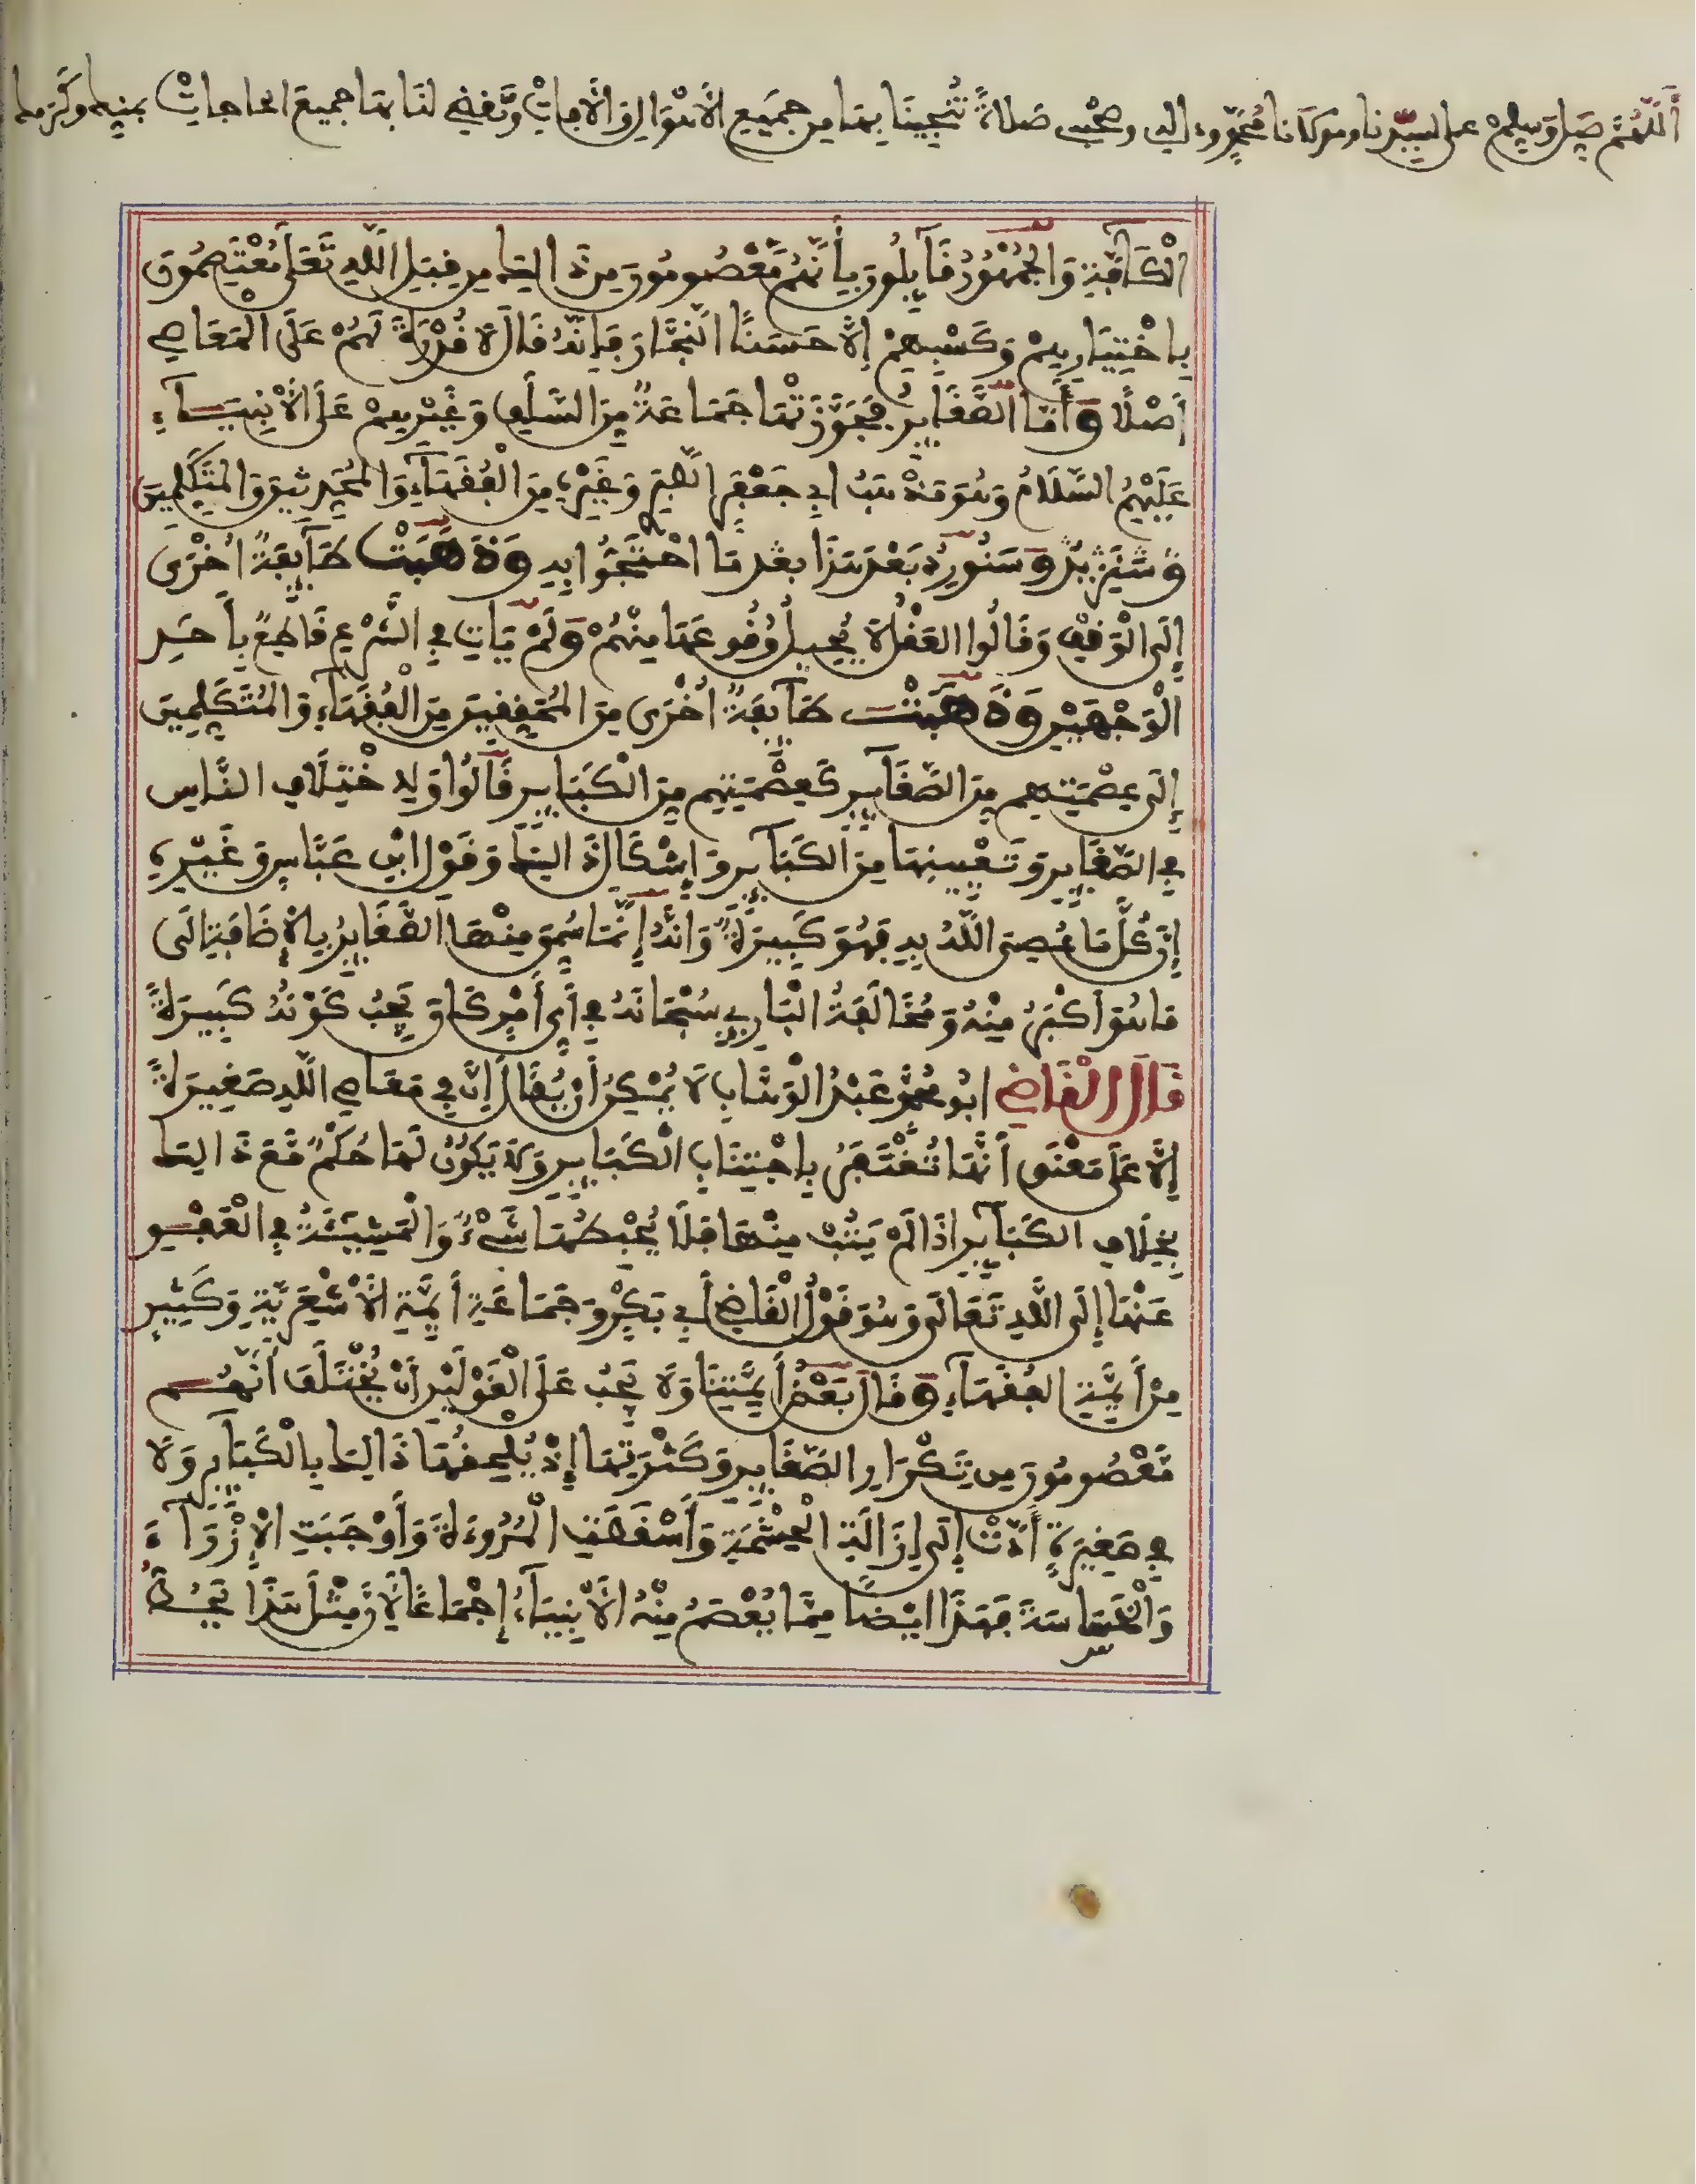 اَللَّهُمَّ صَلِّ وَسَلِّمْ على سيّدنا ومولانا مُحَمَّدٍ وءاله وصحبه صَلاَةً تُنْجِينَا بِهَا من جَمِيعِ الأَهْوَالِ وَالأَفاتْ وَتَقْضِى لَنَا بِهَا جميعَ الحاجاتْ بمنه وكرمه
الْكَآفَّةِ وَالْجُمْهُورُ قَآئِلُونَ بِأَنَّهُمْ مَّعْصُومُونَ مِن ذَالِكَ مِن قِبَلِ اللَّهِ تَعَلَى مُعْتَصِمُونَ
بِاخْتِيَارِهِمْ وَكَسْبِهِمْ إِلاَّ حَسَنًا النَّجَّارَ فَإِنَّهُ قَالَ لاَ قُدْرَةَ لَهُمْ عَلَى الْمَعَاصِي
أَصْلًا وَأَمَّا الصَّغَآئِرُ فَجَوَّزَتْهَا جَمَاعَةٌ مِّنَ السَّلَفِ وَغَيْرِهِمْ عَلَى الأَنْبِيَآءِ
عَلَيْهِمُ السَّلاَمُ وَهُوَ مَذْهَبُ أَبِي جَعْفَرٍ الطَّبَرِي وَغَيْرِهِ مِنَ الْفُقَهَآءِ وَالْمُحَدِّثِينَ وَالْمُتَكَلِّمِينَ
وَسَنُورِدُ بَعْدَ هَذَا مَا احْتَجُّوا بِهِ وَذَهَبَتْ طَآئِفَةٌ أُخْرَى
إِلَى الْوَقْفِ وَقَالُوا العَقْلُ لاَ يُحِيلُ وُقُوعَهَا مِنْهُمْ وَلَمْ يَاتِ فِي الشَّرْعِ قَاطِعٌ بِأَحَدِ
الْوَجْهَيْنِ وَذَهَبَتْ طَآئِفَةٌ أُخْرَى مِنَ الْمُحَقِّقِينَ مِنَ الْفُقَهَآءِ وَالْمُتَكَلِّمِينَ
إِلَى عِصْمَتِهِم مِّنَ الصَّغَآئِرِ كَعِصْمَتِهِم مِّنَ الْكَبَآئِرِ قَالُوا وَلِاخْتِلَافِ النَّاسِ
فِي الصَّغَآئِرِ وَتَعْيِينِهَا مِنَ الْكَبَآئِرِ وَإِشْكَالِ ذَالِكَ وَقَوْلِ ابْنِ عَبَّاسٍ وَغَيْرِهِ
إِنَّ كُلَّ مَا عُصِيَ اللَّهُ بِهِ فَهُوَ كَبِيرَةٌ وَأَنَّهُ إِنَّمَا سُمِّيَ مِنْهَا الصَّغَآئِرُ بِالإِضَافَةِ إِلَى
مَا هُوَ أَكْبَرُ مِنْهُ وَمُخَالَفَةُ الْبَارِي سُبْحَانَهُ فِي أَيِّ أَمْرٍ كَانَ يَجِبُ كَوْنُهُ كَبِيرَةً
قَالَ الْقَاضِي أَبُو مُحَمَّدٍ عَبْدُ الْوَهَّابِ لاَ يُمْكِنُ أَنْ يُقَالَ إِنَّ فِي مَعَاصِي اللَّهِ صَغِيرَةً
إِلاَّ عَلَى مَعْنَى أَنَّهَا تُغْتَفَرُ بِاجْتِنَابِ الْكَبَآئِرِ وَلاَ يَكُونُ لَهَا حُكْمٌ مَّعَ ذَالِكَ
بِخِلَافِ الْكَبَآئِرِ إِذَا لَمْ يَتُبْ مِنْهَا فَلَا يُحْبِطُهَا شَيْءٌ وَالْمَشِيئَةُ فِي الْعَفْوِ
عَنْهَا إِلَى اللَّهِ تَعَالَى وَهُوَ قَوْلُ الْقَاضِي أَبِي بَكْرٍ وَجَمَاعَةِ أَئِمَّةِ الأَشْعَرِيَّةِ وَكَثِيرٍ
مِنْ أَئِمَّةِ الْفُقَهَآءِ وَقَالَ بَعْضُ أَئِمَّتِنَا وَلاَ يَجِبُ عَلَى الْقَوْلَيْنِ أَنْ يُخْتَلَفَ أَنَّهُمْ
مَّعْصُومُونَ مِن تِكْرَارِ الصَّغَآئِرِ وَكَثْرَتِهَا إِذْ يُلْحِقُهَا ذَالِكَ بِالْكَبَآئِرِ وَلاَ
فِي صَغِيرَةٍ أَدَّتْ إِلَى إِزَالَةِ الْحِشْمَةِ وَأَسْقَطَتِ الْمُرُوءَةَ وَأَوْجَبَتِ الإِزْرَآءَ
وَالْخَسَاسَةَ فَهَذَا أَيْضًا مِمَّا يُعْصَمُ مِنْهُ الأَنْبِيَآءُ إِجْمَاعًا لِأَنَّ مِثْلَ هَذَا يَحُطُّ